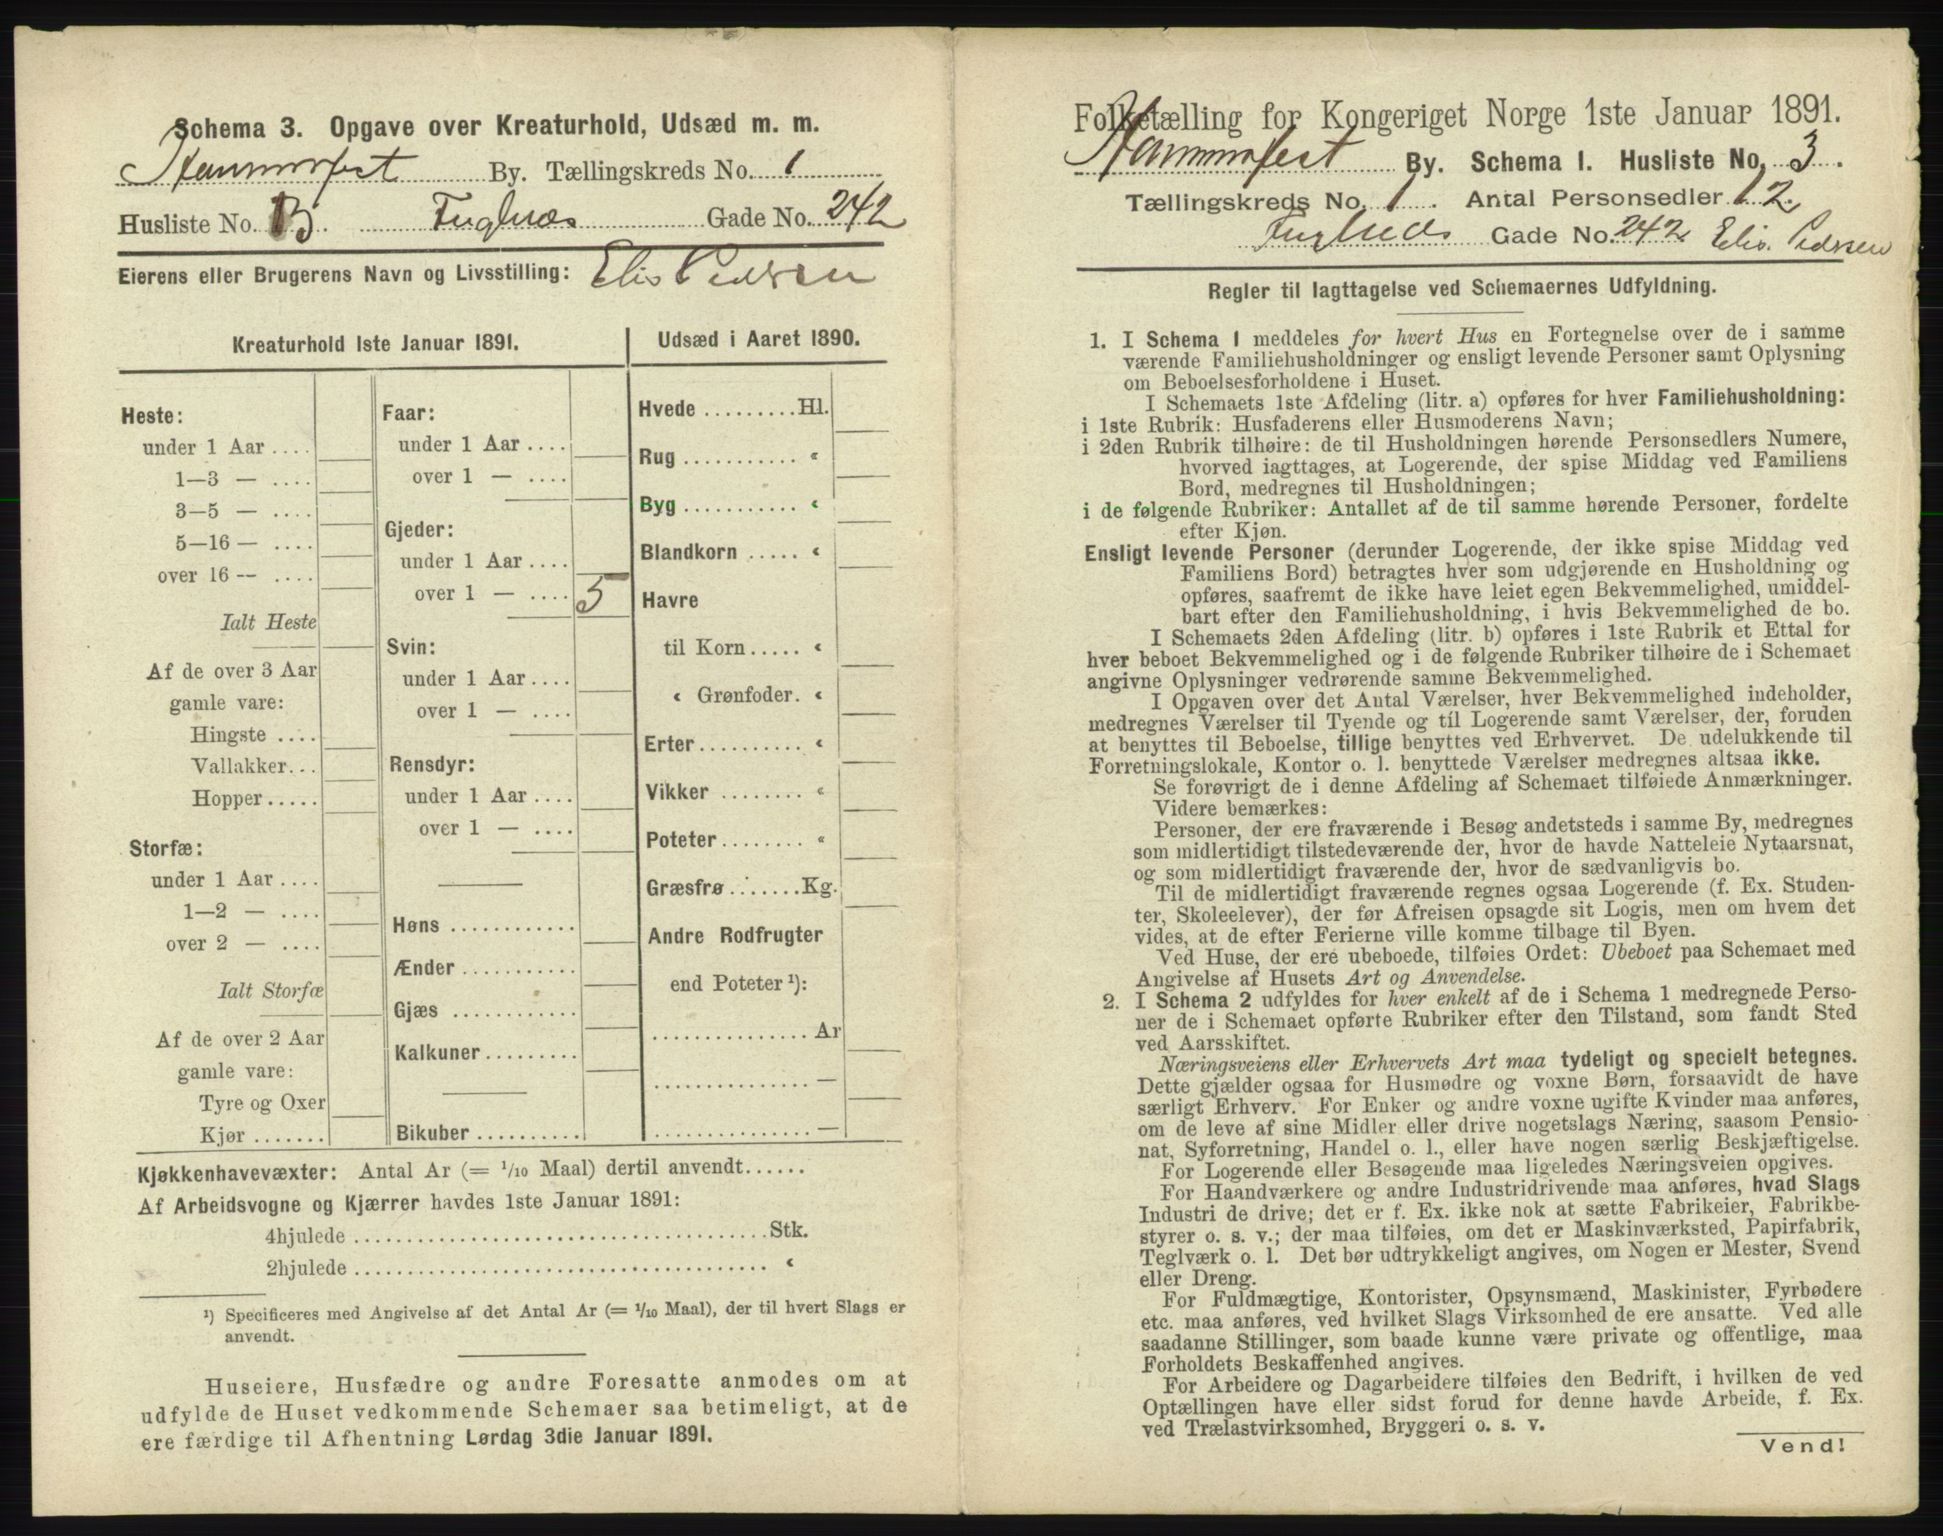 Schema 3. Opgave over Kreaturhold, Udsæd m. m.
Hammerfest By. Tællingskreds No. 1
Husliste No. 3. Fuglnæs Gade No. 242
Eierens eller Brugerens Navn og Livsstilling: Elis Pedersen
Kreaturhold 1ste Januar 1891.
Heste:
under 1 Aar ....
1—3 — ....
3—5 — ....
5—16 — ....
over 16 -- ....
Ialt Heste
Af de over 3 Aar
gamle vare:
Hingste ....
Vallakker...
Hopper.....
Storfæ:
under 1 Aar ....
1—2 — ....
over 2 — ....
Ialt Storfæ
Af de over 2 Aar
gamle vare:
Tyre og Oxer
Kjør .......
Faar:
under 1 Aar ....
over 1 — ....
Gjeder:
under 1 Aar ....
over 1 — .... 5
Svin:
under 1 Aar ....
over 1 — ....
Rensdyr:
under 1 Aar ....
over 1 — ....
Høns ............
Ænder ...........
Gjæs ............
Kalkuner.........
Bikuber ..........
Udsæd i Aaret 1890.
Hvede .........Hl.
Rug ........... «
Byg ........... «
Blandkorn ..... «
Havre
til Korn ..... «
« Grønfoder. «
Erter .......... «
Vikker ........ «
Poteter ........ «
Græsfrø .......Kg.
Andre Rodfrugter
end Poteter ¹):
...............Ar
............... —
............... —
Kjøkkenhavevæxter: Antal Ar (= 1/10 Maal) dertil anvendt......
Af Arbeidsvogne og Kjærrer havdes 1ste Januar 1891:
4hjulede ........................................Stk.
2hjulede ........................................ «
¹) Specificeres med Angivelse af det Antal Ar (= 1/10 Maal), der til hvert Slags er
anvendt.
Huseiere, Husfædre og andre Foresatte anmodes om at
udfylde de Huset vedkommende Schemaer saa betimeligt, at de
ere færdige til Afhentning Lørdag 3die Januar 1891.
Folketælling for Kongeriget Norge 1ste Januar 1891.
Hammerfest By. Schema I. Husliste No. 3.
Tællingskreds No. 1. Antal Personsedler 12.
Fuglnæs Gade No. 242 Elis. Pedersen
Regler til Iagttagelse ved Schemaernes Udfyldning.
1. I Schema 1 meddeles for hvert Hus en Fortegnelse over de i samme
værende Familiehusholdninger og ensligt levende Personer samt Oplysning
om Beboelsesforholdene i Huset.
I Schemaets 1ste Afdeling (litr. a) opføres for hver Familiehusholdning:
i 1ste Rubrik: Husfaderens eller Husmoderens Navn;
i 2den Rubrik tilhøire: de til Husholdningen hørende Personsedlers Numere,
hvorved iagttages, at Logerende, der spise Middag ved Familiens
Bord, medregnes til Husholdningen;
i de følgende Rubriker: Antallet af de til samme hørende Personer, fordelte
efter Kjøn.
Ensligt levende Personer (derunder Logerende, der ikke spise Middag ved
Familiens Bord) betragtes hver som udgjørende en Husholdning og
opføres, saafremt de ikke have leiet egen Bekvemmelighed, umiddel-
bart efter den Familiehusholdning, i hvis Bekvemmelighed de bo.
I Schemaets 2den Afdeling (litr. b) opføres i 1ste Rubrik et Ettal for
hver beboet Bekvemmelighed og i de følgende Rubriker tilhøire de i Schemaet
angivne Oplysninger vedrørende samme Bekvemmelighed.
I Opgaven over det Antal Værelser, hver Bekvemmelighed indeholder,
medregnes Værelser til Tyende og til Logerende samt Værelser, der, foruden
at benyttes til Beboelse, tillige benyttes ved Erhvervet. De udelukkende til
Forretningslokale, Kontor o. l. benyttede Værelser medregnes altsaa ikke.
Se forøvrigt de i denne Afdeling af Schemaet tilføiede Anmærkninger.
Videre bemærkes:
Personer, der ere fraværende i Besøg andetsteds i samme By, medregnes
som midlertidigt tilstedeværende der, hvor de havde Natteleie Nytaarsnat,
og som midlertidigt fraværende der, hvor de sædvanligvis bo.
Til de midlertidigt fraværende regnes ogsaa Logerende (f. Ex. Studen-
ter, Skoleelever), der før Afreisen opsagde sit Logis, men om hvem det
vides, at de efter Ferierne ville komme tilbage til Byen.
Ved Huse, der ere ubeboede, tilføies Ordet: Ubeboet paa Schemaet med
Angivelse af Husets Art og Anvendelse.
2. I Schema 2 udfyldes for hver enkelt af de i Schema 1 medregnede Perso-
ner de i Schemaet opførte Rubriker efter den Tilstand, som fandt Sted
ved Aarsskiftet.
Næringsveiens eller Erhvervets Art maa tydeligt og specielt betegnes.
Dette gjælder ogsaa for Husmødre og voxne Børn, forsaavidt de have
særligt Erhverv. For Enker og andre voxne ugifte Kvinder maa anføres,
om de leve af sine Midler eller drive nogetslags Næring, saasom Pensio-
nat, Syforretning, Handel o. l., eller have nogen særlig Beskjæftigelse.
For Logerende eller Besøgende maa ligeledes Næringsveien opgives.
For Haandværkere og andre Industridrivende maa anføres, hvad Slags
Industri de drive; det er f. Ex. ikke nok at sætte Fabrikeier, Fabrikbe-
styrer o. s. v.; der maa tilføies, om det er Maskinværksted, Papirfabrik,
Teglværk o. l. Det bør udtrykkeligt angives, om Nogen er Mester, Svend
eller Dreng.
For Fuldmægtige, Kontorister, Opsynsmænd, Maskinister, Fyrbødere
etc. maa anføres, ved hvilket Slags Virksomhed de ere ansatte. Ved alle
saadanne Stillinger, som baade kunne være private og offentlige, maa
Forholdets Beskaffenhed angives.
For Arbeidere og Dagarbeidere tilføies den Bedrift, i hvilken de ved
Optællingen have eller sidst forud for denne havde Arbeide, f. Ex.
ved Trælastvirksomhed, Bryggeri o. s. v.
Vend!